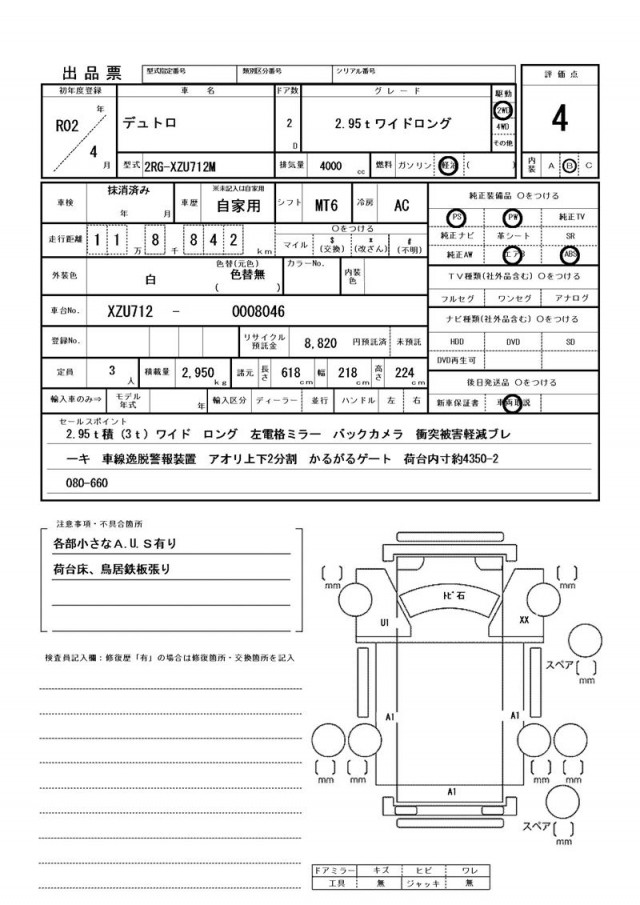 出品票 型式指定番号 類別区分番号 シリアル番号
評価点
初年度登録 車名 ドア数 グレード 駆動
R02 年 4 月
デュトロ 2 D 2.95tワイドロング
2WD
4WD
その他
4
型式 2RG-XZU712M 排気量 4000 cc 燃料 ガソリン 軽油 ( )
内装 A B C
車検 抹消済み 年 月 車歴 ※未記入は自家用 自家用 シフト MT6 冷房 AC
純正装備品 〇をつける
PS PW 純正TV
走行距離 11万 8千 842 km 〇をつける マイル $(交換) *(改ざん) #(不明)
純正ナビ 革シート SR
純正AW エアB ABS
外装色 白 色替(元色) 色替無 ( ) カラーNo. 内装色
TV種類(社外品含む) 〇をつける
フルセグ ワンセグ アナログ
車台No. XZU712 - 0008046
ナビ種類(社外品含む) 〇をつける
登録No. リサイクル預託金 8,820 円預託済 未預託
HDD DVD SD
DVD再生可
定員 3 人 積載量 2,950 kg 諸元 長さ 618 cm 幅 218 cm 高さ 224 cm
後日発送品 〇をつける
輸入車のみ⇒ モデル年式 年 輸入区分 ディーラー 並行 ハンドル 左 右
新車保証書 車両取説
セールスポイント
2.95t積(3t)ワイド ロング 左電格ミラー バックカメラ 衝突被害軽減ブレ
ーキ 車線逸脱警報装置 アオリ上下2分割 かるがるゲート 荷台内寸約4350-2
080-660
注意事項・不具合箇所
各部小さなA.U.S有り
荷台床、鳥居鉄板張り
検査員記入欄:修復歴「有」の場合は修復箇所・交換箇所を記入
mm
ﾄﾋﾞ石
mm
U1
XX
スペア
mm
A1
A1
mm mm mm mm
A1
スペア
mm
ドアミラー キズ ヒビ ワレ
工具 無 ジャッキ 無